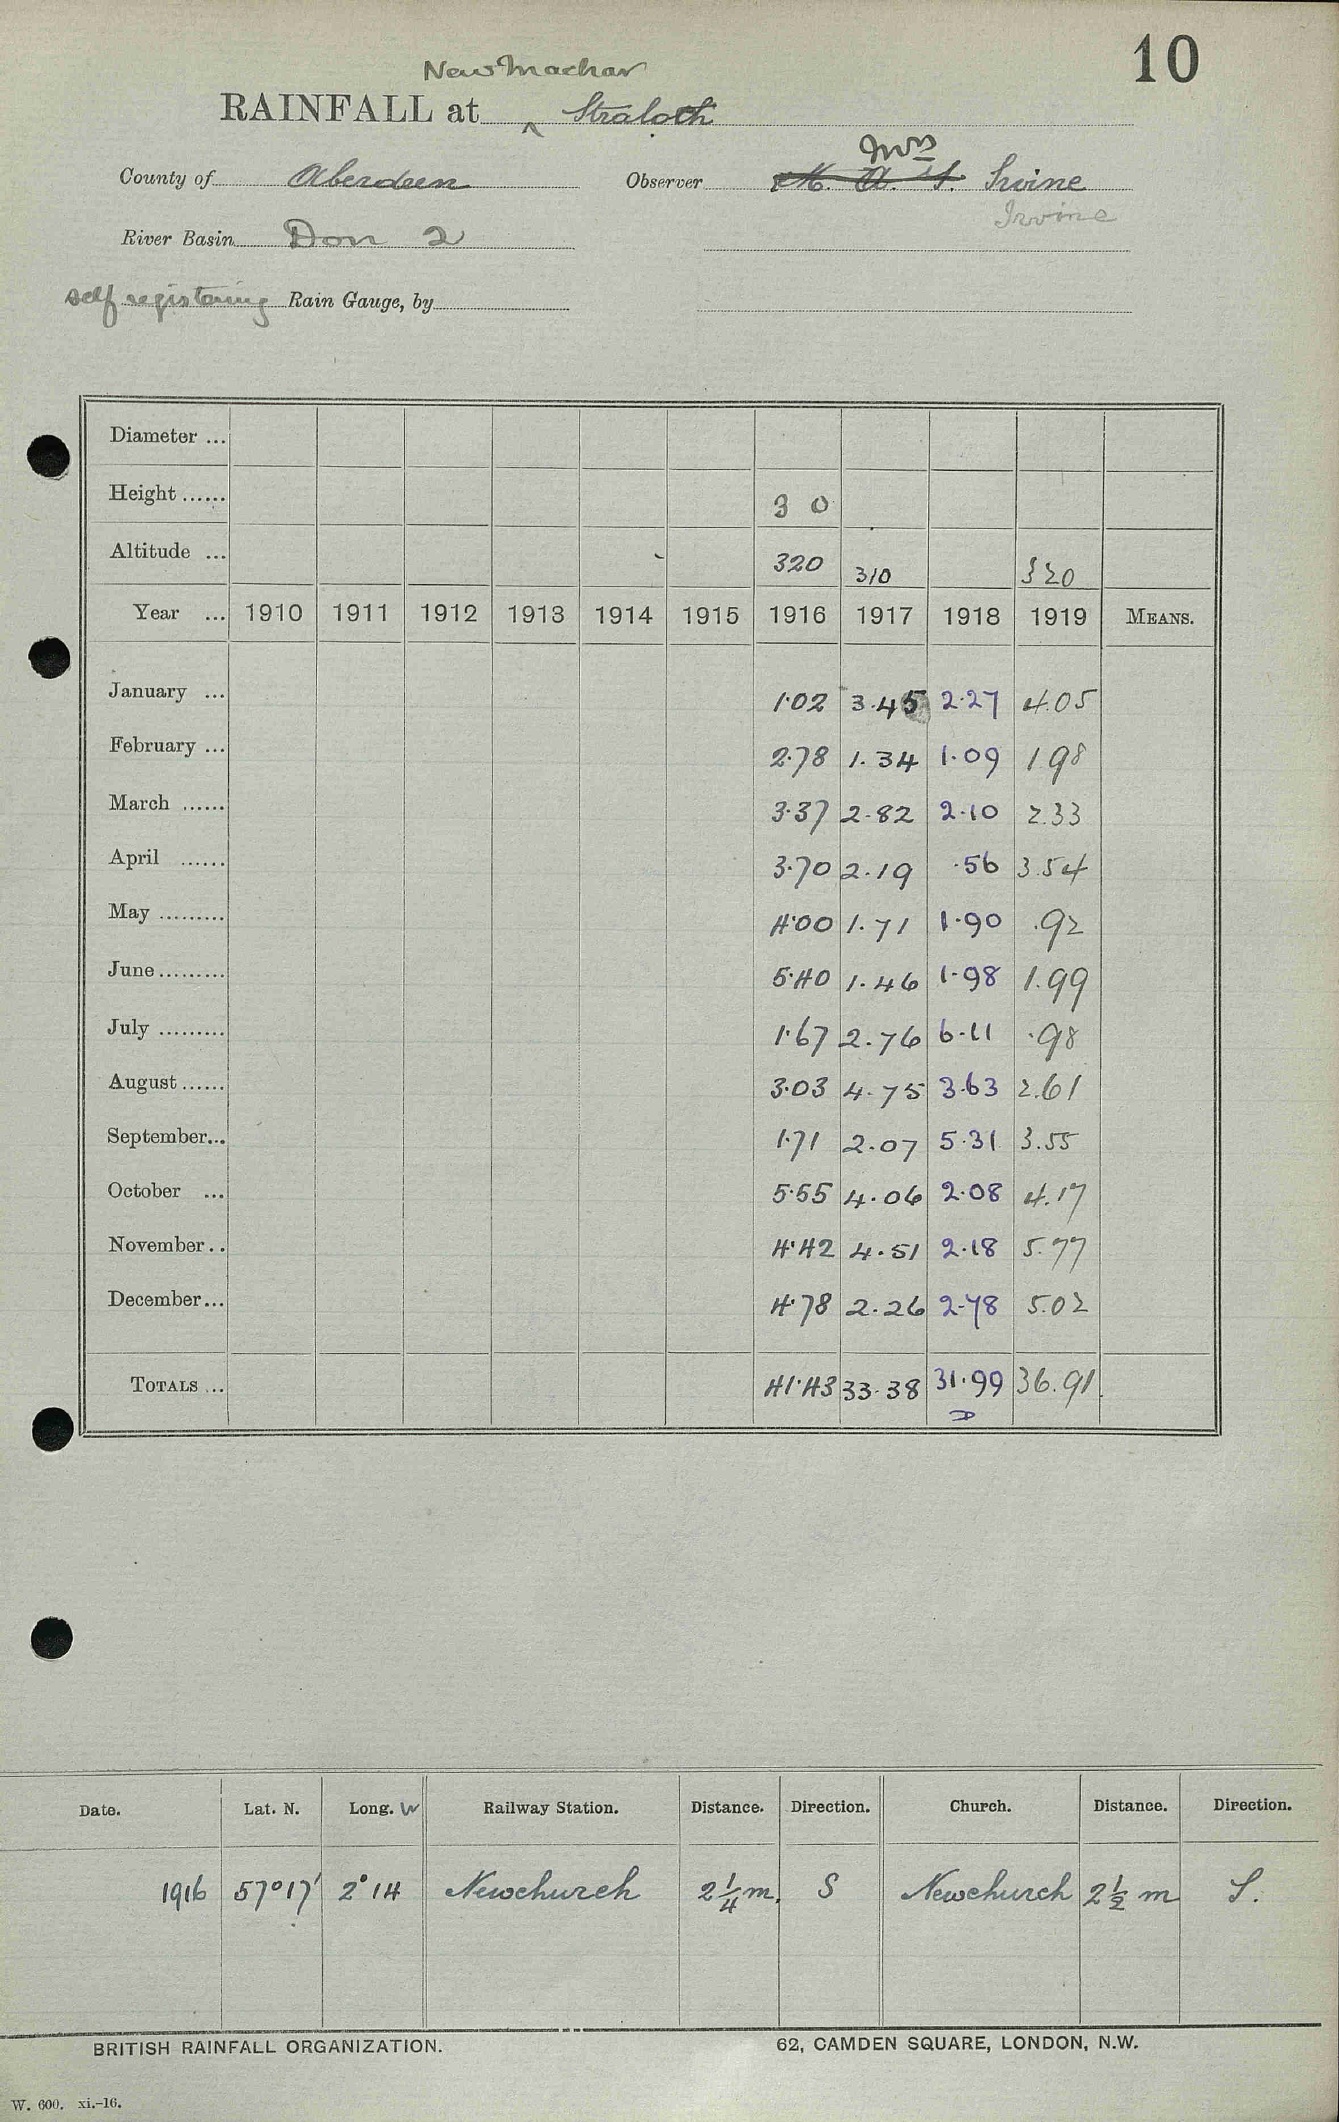 10
New Machar
RAINFALL at ^ Straloch
Mrs
County of Aberdeen Observer M. A. S. Irvine
Irvine
River Basin Don 2
self registering Rain Gauge, by
Diameter ...
Height ...... 3 0
Altitude ... 320 310 320
Year ... 1910 1911 1912 1913 1914 1915 1916 1917 1918 1919 MEANS.
January ... 1.02 3.45 2.27 4.05
February ... 2.78 1.34 1.09 1.98
March ...... 3.37 2.82 2.10 2.33
April ...... 3.70 2.19 .56 3.54
May ......... 4.00 1.71 1.90 .92
June ......... 5.40 1.46 1.98 1.99
July ......... 1.67 2.76 6.11 .98
August ...... 3.03 4.75 3.63 2.61
September... 1.71 2.07 5.31 3.55
October ... 5.55 4.06 2.08 4.17
November.. 4.42 4.51 2.18 5.77
December... 4.78 2.26 2.78 5.02
TOTALS ... 41.43 33.38 31.99 36.91
Date. Lat. N. Long. W Railway Station. Distance. Direction. Church. Distance. Direction.
1916 57°17' 2°14 Newchurch 2 1/4 m. S Newchurch 2 1/2 m S.
BRITISH RAINFALL ORGANIZATION. 62, CAMDEN SQUARE, LONDON, N.W.
W. 600. xi.-16.